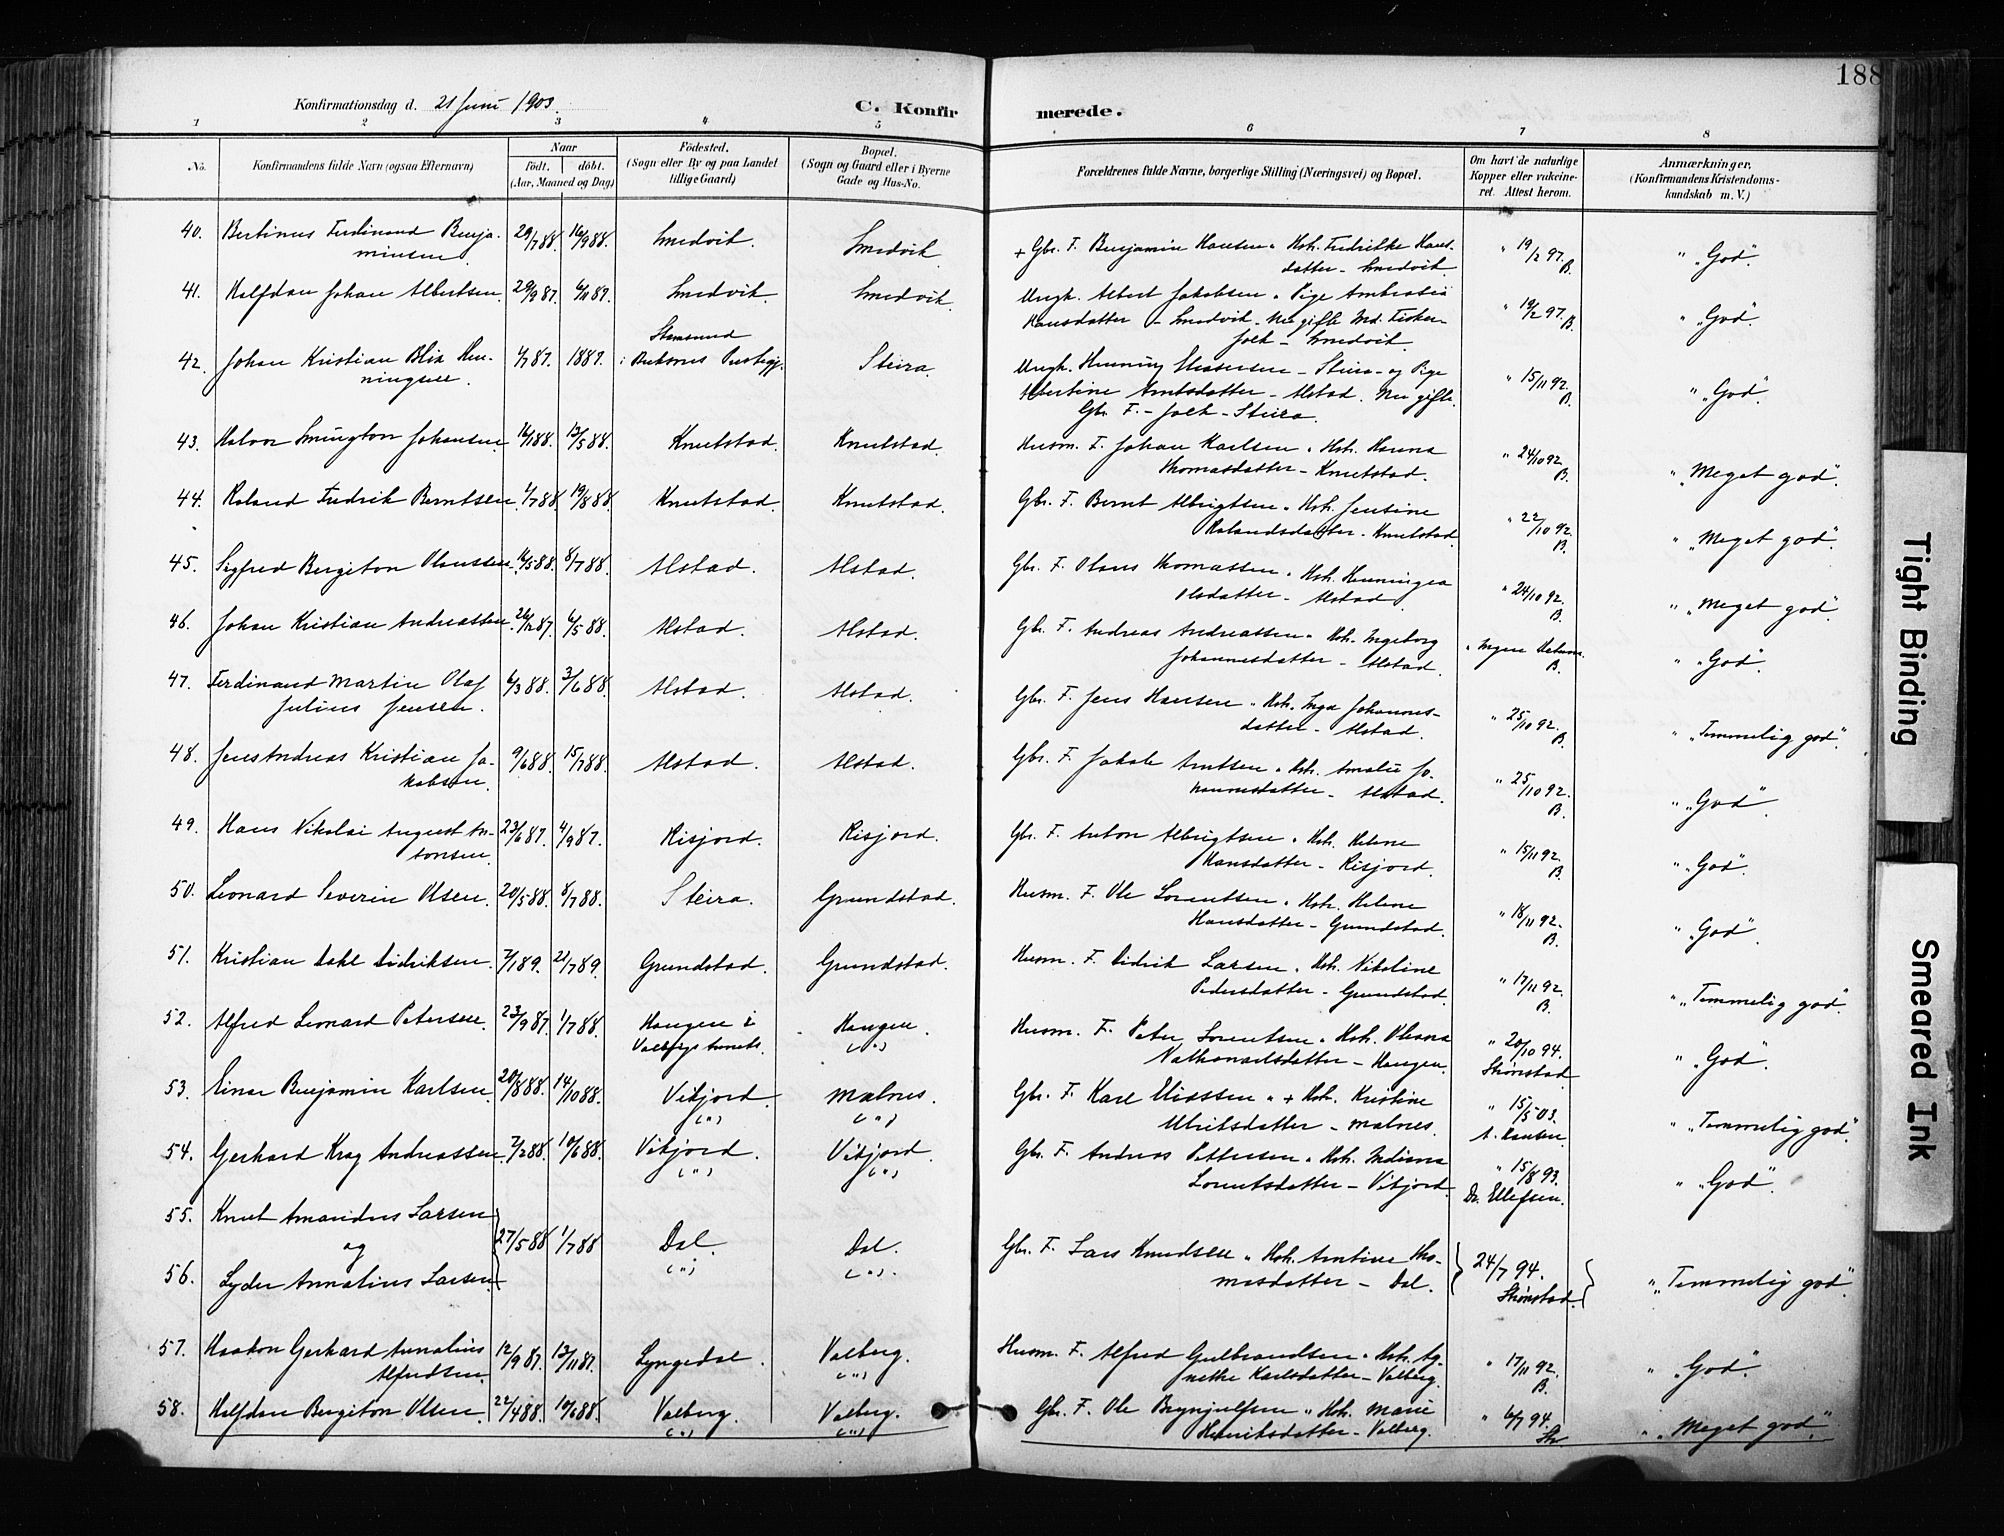 188
Konfirmationsdag d. 21 Juni 1903.
C. Konfirmerede.
1 2 3 4 5 6 7 8
No.
Konfirmandens fulde Navn (ogsaa Efternavn)
Naar
født. døbt.
(Aar, Maaned og Dag)
Fødested.
(Sogn eller By og paa Landet
tillige Gaard)
Bopæl.
(Sogn og Gaard eller i Byerne
Gade og Hus-No.
Forældrenes fulde Navne, borgerlige Stilling (Næringsvei) og Bopæl.
Om havt de naturlige
Kopper eller vakcine-
ret. Attest herom.
Anmærkninger.
(Konfirmandens Kristendoms-
kundskab m. V.)
40. Bertinus Ferdinand Benja- 29/7 88. 16/9 88. Smedvik. Smedvik. + Gbr. F. Benjamin Hansen " Hst. Fredrikke Hans- " 19/2 97. " "God".
minsen. datter – Smedvik. B.
41. Halfdan Johan Albertsen. 29/9 87. 6/11 87. Smedvik. Smedvik. Ungk. Albert Jakobsen " Pige " 19/2 97. " "God".
Hansdatter – Smedvik – Nu gifte Fisker B.
folk – Smedvik.
Stamsund
42. Johan Kristian Blix Hen- 1/7 87. 1887. i Buksnes Prestegj. Steira. Ungk. Henning – Steira – og Pige " 15/11 92. " "God".
ningsen. Albertine Arntsdatter – Alstad. Nu gifte B.
Gbr. F. – folk – Steira.
43. Halvor Smington Johansen 16/1 88. 13/5 88. Knutstad. Knutstad. Husm. F. Johan Karlsen " Hst. Hanna " 24/10 92. " "Meget god".
Thomasdatter – Knutstad. B.
44. Roland Fredrik Berntsen 1/7 88. 19/8 88. Knutstad. Knutstad. Gbr. F. Bernt Albrigtsen " Hst. Jensine " 22/10 92. " "Meget god".
Rolandsdatter – Knutstad. B.
45. Sigfred Bergiton Olaussen 16/5 88. 8/7 88. Alstad. Alstad. Gbr. F. Olaus Thomassen " Hst. Henningea " 24/10 92. " "Meget god".
Olsdatter – Alstad. B.
46. Johan Kristian Andreassen. 26/12 87. 6/5 88. Alstad. Alstad. Gbr. F. Andreas Andreassen " Hst. Ingeborg " Ingen " "God".
Johannesdatter – Alstad. B.
47. Ferdinand Martin Olaf 6/3 88. 3/6 88. Alstad. Alstad. Gbr. F. Jens Hansen " Hst. Inga Johannes- " 25/10 92. " "Temmelig god".
Julius Jensen. datter – Alstad. B.
48. Jens Andreas Kristian Ja- 9/6 88. 15/7 88. Alstad. Alstad. Gbr. F. Jakob Arntsen " Hst. Amalie Jo- " 25/10 92. " "God".
kobsen. hannesdatter – Alstad. B.
49. Hans Nikolai August An- 23/6 87. 4/9 87. Risjord. Risjord. Gbr. F. Anton Albrigtsen " Hst. Helene " 15/11 92. " "God".
tonsen. Hansdatter – Risjord. B.
50. Leonard Severin Olsen. 20/5 88. 8/7 88. Steira. Grundstad. Husm. F. Ole Lorentsen " Hst. Helene " 18/11 92. " "God".
Hansdatter – Grundstad. B.
51. Kristian Dahl Didriksen. 7/1 89. 21/7 89. Grundstad. Grundstad. Husm. F. Didrik Larsen " Hst. Nikoline " 17/11 92. " "Temmelig god".
Pedersdatter – Grundstad. B.
52. Alfred Leonard Petersen. 23/9 87. 1/7 88. Haugen i Haugen. Husm. F. Peter Lorentsen " Hst. Oleana " 20/10 94. " "God".
Valbergs (") Nathanaelsdatter – Haugen. Skønstad
53. Einar Benjamin Karlsen. 20/8 88. 14/10 88. Vikjord. Malnes. Gbr. F. Karl Eliassen " + Hst. Kristine " 15/5 03. " "Temmelig god".
(") (") Ulriksdatter – Malnes. A. Hansen.
54. Gerhard Krog Andreassen. 7/2 88. 10/6 88. Vikjord. Vikjord. Gbr. F. Andreas Pettersen " Hst. Indiana " 15/8 93. " "God".
(") (") Lorentsdatter – Vikjord. Dr. Ellefsen.
55. Knut Amandus Larsen
og 27/5 88 1/7 88 Dal. Dal. Gbr. F. Lars Knudsen " Hst. Arntine Tho- 24/7 94. " "Temmelig god".
56. Lyder Annalius Larsen. (") (") masdatter – Dal. Skønstad.
57. Haakon Gerhard Annalius 12/9 87. 13/11 87. Lyngedal. Valberg. Husm. F. Alfred Gulbrandsen " Hst. Ag- " 17/11 92. " "God".
Alfredsen. (") nethe Karlsdatter – Valberg. B.
58. Halfdan Bergiton Olsen. 22/4 88. 10/6 88. Valberg. Valberg. Gbr. F. Ole Brynjulfsen " Hst. Marie " 6/7 94. " "Meget god".
(") (") Henriksdatter – Valberg. Sk
Tight Binding
Smeared Ink